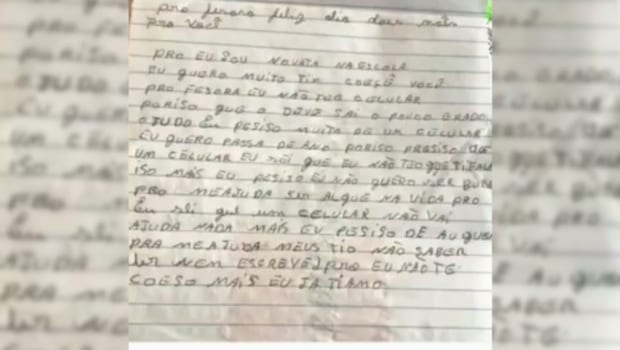 pro fesora feliz dia dous mais
pra você
PRO EU SOU NOVATA NA ESCOLA
EU QUERO MUITO TI COESÊ VOCÊ
PRO FESORA EU NÃO TEO CELULAR
PORISO QUE O DEVE SAI O POUCO ERADO
O TUDO Eu PESISO MUITO DE UM CELULAR
EU QUERO PASSA DE ANO PORISO PRESISO DE
UM CELULAR EU SEI QUE EU NÃO
ISO MAIS EU PESISO EU NÃO QUERO SER BURA
PRO MEAJUDA SER ALGUE NA VIDA PRO
Eu sei qui um CELULAR NÃO VAI
AJUDA NADA MAIS EU PESISO DE AUGUE
PRA MEAJUDA MEUS TIO NÃO SABER
ler NEM ESCREVE pro EU NÃO TE
COESO MAIS EU JA TIAMO